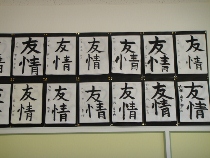 友情 友情 友情 友情 友情 友情 友情
友情 友情 友情 友情 友情 友情 友情